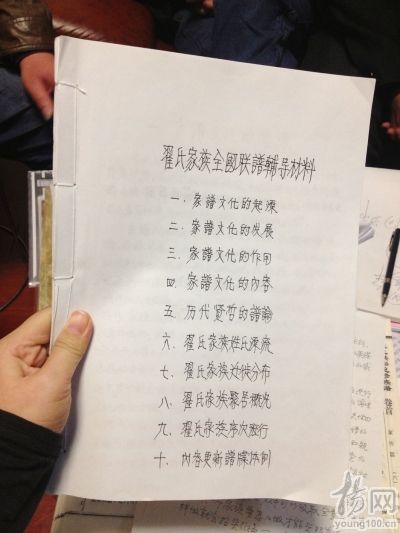 翟氏家族全國联譜輔导材料
一. 家譜文化的起源
二. 家譜文化的发展
三. 家譜文化的作用
四. 家譜文化的内容
五. 历代贤哲的譜論
六. 翟氏家族姓氏源流
七. 翟氏家族迁徙分布
八. 翟氏家族聚居概况
九. 翟氏家族序次班行
十. 内容更新譜牒体例
卷首
扬网
young100.cn